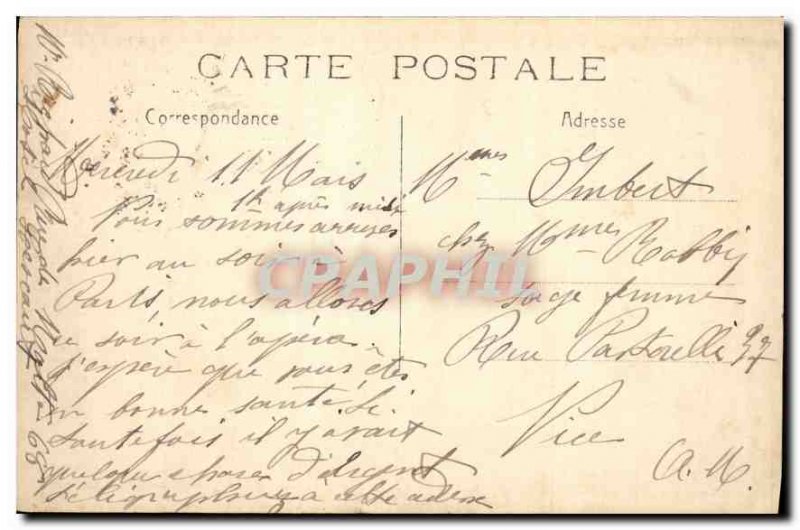 CARTE POSTALE
Correspondance
Adresse
Mercredi 11 Mars
1h après midi
sommes arrivés
hier au soir à
Paris, nous allons
ce soir à l'opéra.
J'espère que vous êtes
en bonne santé. Si
toutefois il y avait
quelque chose d'urgent
télégraphiez à cette adresse
Mmes Imbert
chez Mmes Rabby
sage femme
Rue Pastorelli 37
Nice
A. M.
CPAPHIL